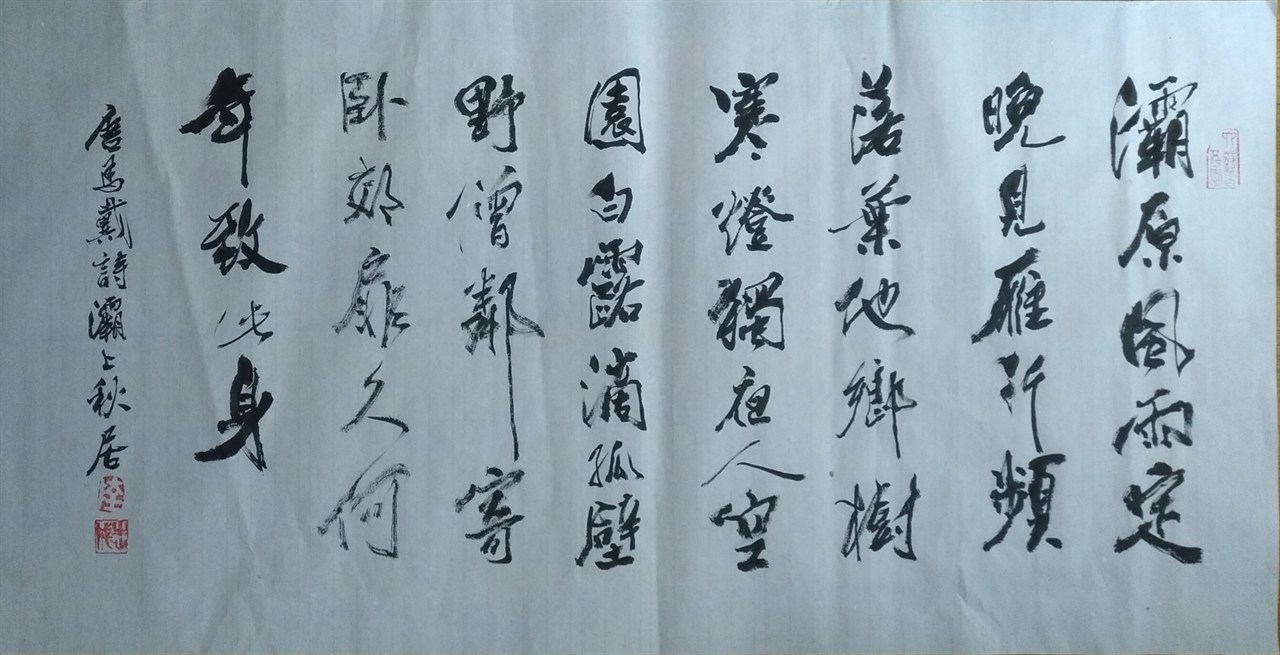 灞原風雨定
晚見雁行頻
落葉他鄉樹
寒燈獨夜人空
園白露滴孤壁
野僧鄰寄
臥郊扉久何
年致此身
唐馬戴詩灞上秋居